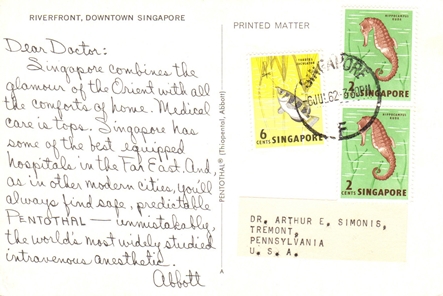 RIVERFRONT, DOWNTOWN SINGAPORE
Dear Doctor:
Singapore combines the
glamour of the Orient with all
the comforts of home. Medical
care is tops. Singapore has
some of the best equipped
hospitals in the Far East. And,
as in other modern cities, you'll
always find safe, predictable
PENTOTHAL — unmistakably,
the world's most widely studied
intravenous anesthetic.
Abbott
PENTOTHAL® (Thiopental, Abbott)
A
PRINTED MATTER
TOXOTES JACULATOR
6 CENTS SINGAPORE
HIPPOCAMPUS KUDA
2 CENTS SINGAPORE
HIPPOCAMPUS KUDA
2 CENTS SINGAPORE
SINGAPORE
E
DR. ARTHUR E. SIMONIS,
TREMONT,
PENNSYLVANIA
U. S. A.